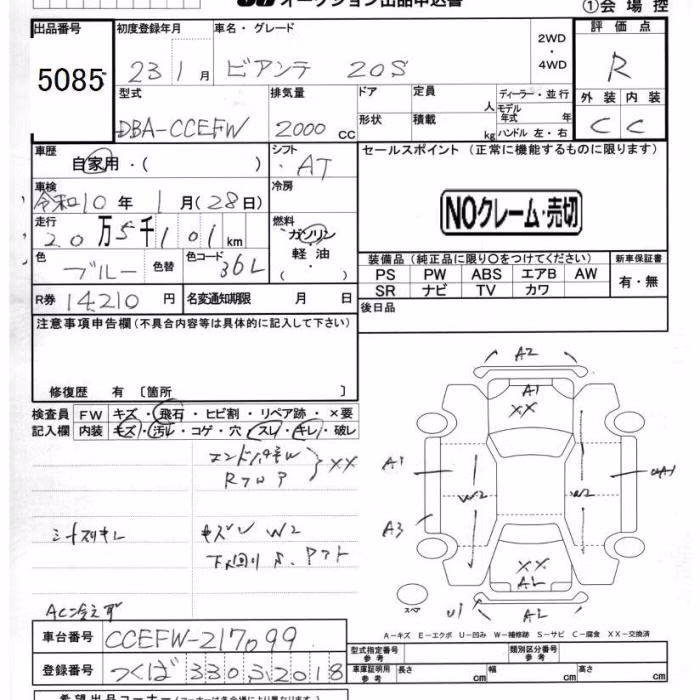 オークション出品申込書
①会場控
出品番号 5085
初度登録年月 23 1月
車名・グレード ビアンテ 20S
2WD・4WD
評価点 R
外装 C 内装 C
型式 DBA-CCEFW
排気量 2000 cc
ドア 形状
定員 人
積載 kg
ディーラー・並行
モデル年式 年
ハンドル 左・右
車歴 自家用・( )
シフト AT
セールスポイント(正常に機能するものに限ります)
NOクレーム・売切
車検 令和10年 1月(28日)
冷房
走行 20万5千101km
燃料 ガソリン・軽油・( )
色 ブルー 色替 色コード 36L
装備品(純正品に限り○をつけてください)
PS PW ABS エアB AW
SR ナビ TV カワ
新車保証書 有・無
R券 14,210円
名変通知期限 月 日
後日品
注意事項申告欄(不具合内容等は具体的に記入して下さい)
修復歴 有〔箇所 〕
検査員記入欄
FW キズ・飛石・ヒビ割・リペア跡・×要
内装 キズ・汚レ・コゲ・穴・スレ・キレ・破レ
エンドパネル
Rフロア
XX
シートスリキレ
キズ凹 W2
下廻りS.
AC冷えず
A2
A1
XX
A1
W2
W2
A3
XX
U1
スペア
A-キズ E-エクボ U-凹み W-補修跡 S-サビ C-腐食 XX-交換済
車台番号 CCEFW-217099
登録番号 つくば 330 ふ 2018
型式指定番号 参考
類別区分番号 参考
車庫証明用 参考 長さ cm 幅 cm 高さ cm
希望出品コーナー